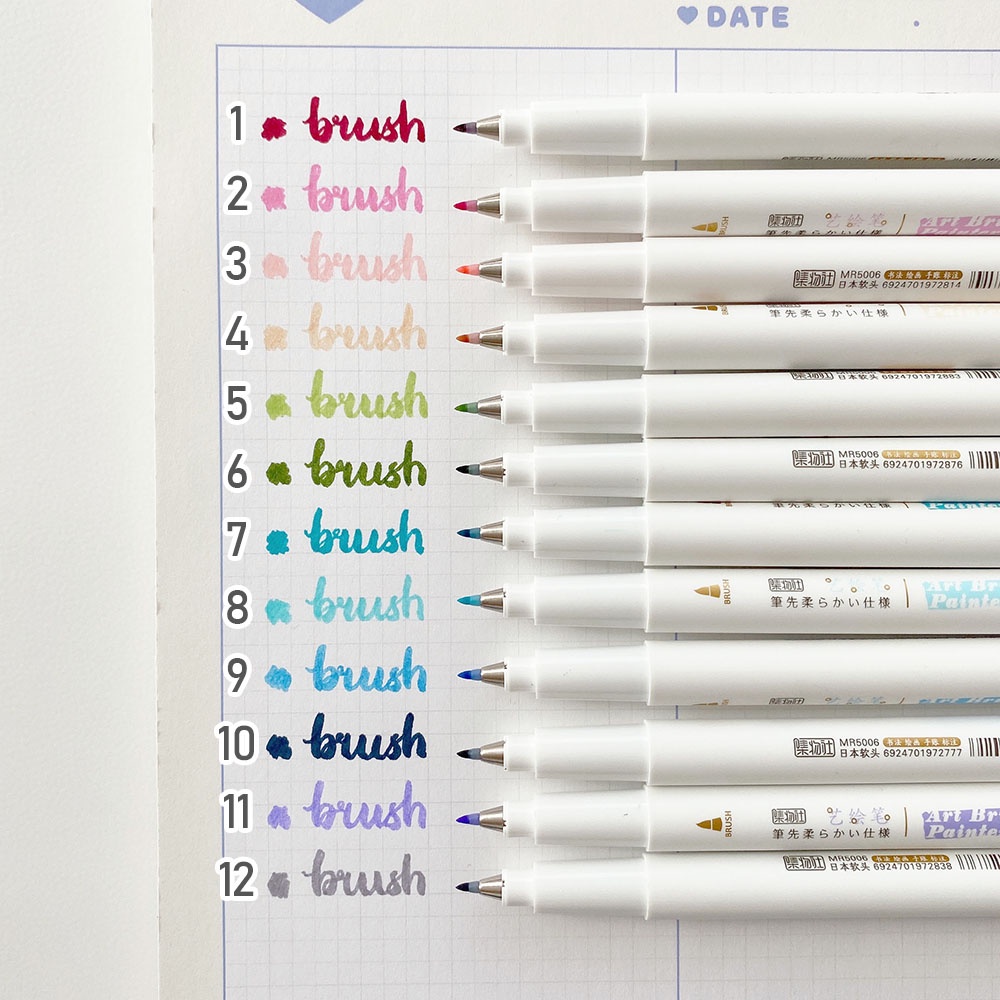 DATE
1 brush
2 brush
BRUSH 集物社 艺绘笔 Art Br
筆先柔らかい仕様 Painte
3 brush
集物社 MR5006 书法 绘画 手账 标注
日本软头 6924701972814
4 brush
筆先柔らかい仕様
5 brush
日本软头 6924701972883
6 brush
集物社 MR5006 书法 绘画 手账 标注
日本软头 6924701972876
7 brush
筆先柔らかい仕様 Painte
8 brush
BRUSH 集物社 艺绘笔 Art Br
筆先柔らかい仕様 Painte
9 brush
10 brush
集物社 MR5006 书法 绘画 手账 标注
日本软头 6924701972777
11 brush
BRUSH 集物社 艺绘笔 Art Br
筆先柔らかい仕様 Painte
12 brush
集物社 MR5006 书法 绘画 手账 标注
日本软头 6924701972838